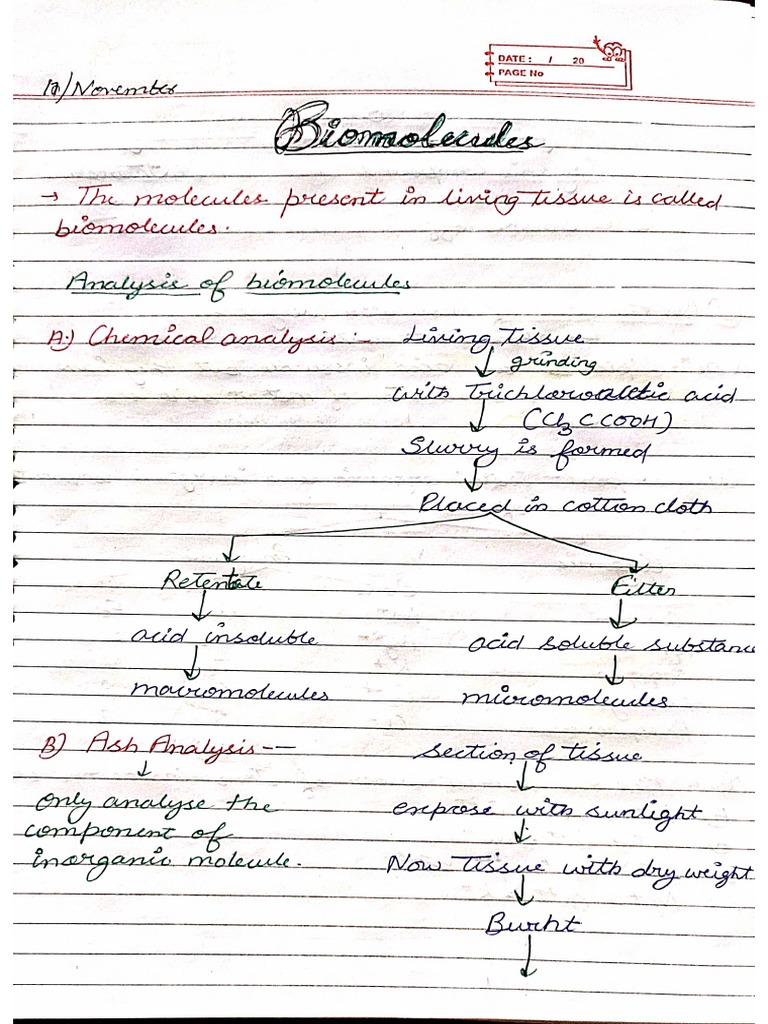 DATE: / 20
PAGE No
/November
Biomolecules
→ The molecules present in living tissue is called
biomolecules.
Analysis of biomolecules
A.) Chemical analysis :- Living tissue
grinding
with Trichloroacetic acid
(Cl3CCOOH)
Slurry is formed
Placed in cotton cloth
Retentate Filter
acid insoluble acid soluble substance
macromolecules micromolecules
B) Ash Analysis -- section of tissue
only analyse the expose with sunlight
component of
inorganic molecule. Now tissue with dry weight
Burnt